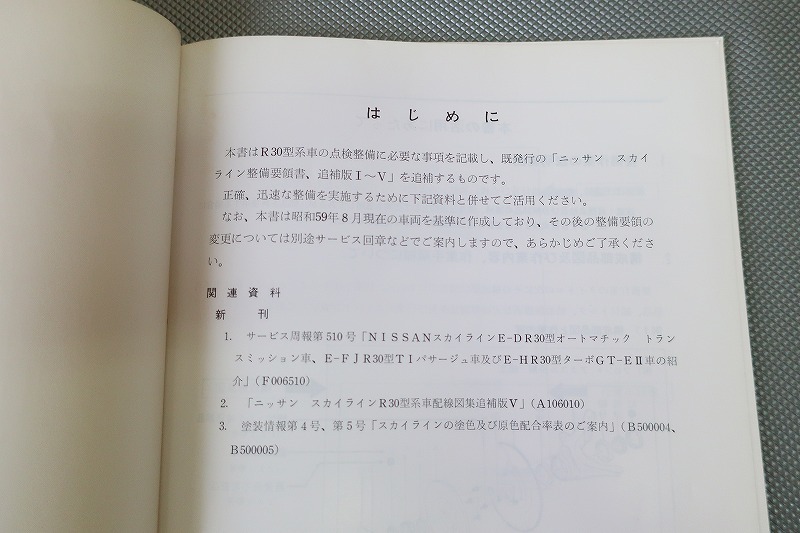 はじめに
本書はR30型系車の点検整備に必要な事項を記載し、既発行の「ニッサン　スカイ
ライン整備要領書、追補版Ⅰ～Ⅴ」を追補するものです。
正確、迅速な整備を実施するために下記資料と併せてご活用ください。
なお、本書は昭和59年8月現在の車両を基準に作成しており、その後の整備要領の
変更については別途サービス回章などでご案内しますので、あらかじめご了承くださ
い。
関連資料
新　刊
1.　サービス周報第510号「NISSANスカイラインE-DR30型オートマチック　トラン
スミッション車、E-FJR30型TIパサージュ車及びE-HR30型ターボGT-EⅡ車の紹
介」(F006510)
2.　「ニッサン　スカイラインR30型系車配線図集追補版Ⅴ」(A106010)
3.　塗装情報第4号、第5号「スカイラインの塗色及び原色配合率表のご案内」(B500004、
B500005)